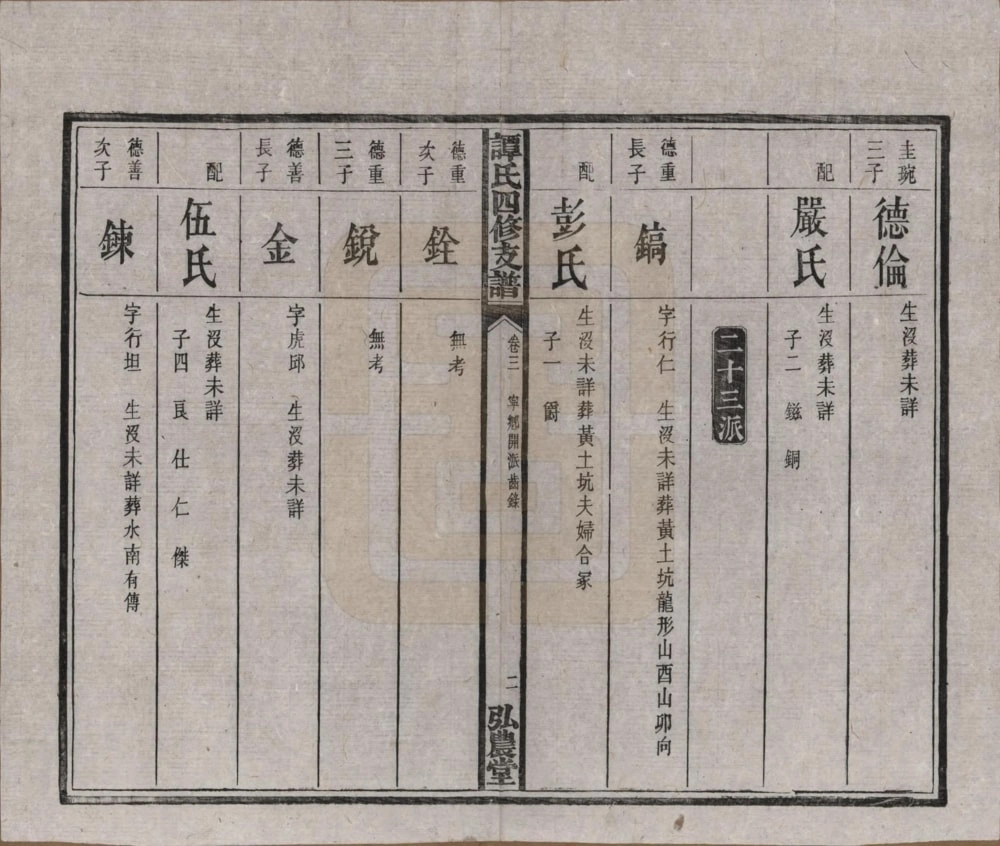 圭琬三子
德倫
生沒葬未詳
配
嚴氏
生沒葬未詳
子二 鎡 銅
二十三派
德重長子
鎬
字行仁 生沒未詳葬黃土坑龍形山酉山卯向
配
彭氏
生沒未詳葬黃土坑夫婦合冢
子一 爵
譚氏四修支譜
卷三 寧鄉開派齒錄
二
弘農堂
德重次子
銓
無考
德重三子
銳
無考
德善長子
金
字虎邱 生沒葬未詳
配
伍氏
生沒葬未詳
子四 良 仕 仁 傑
德善次子
鍊
字行坦 生沒未詳葬水南有傳